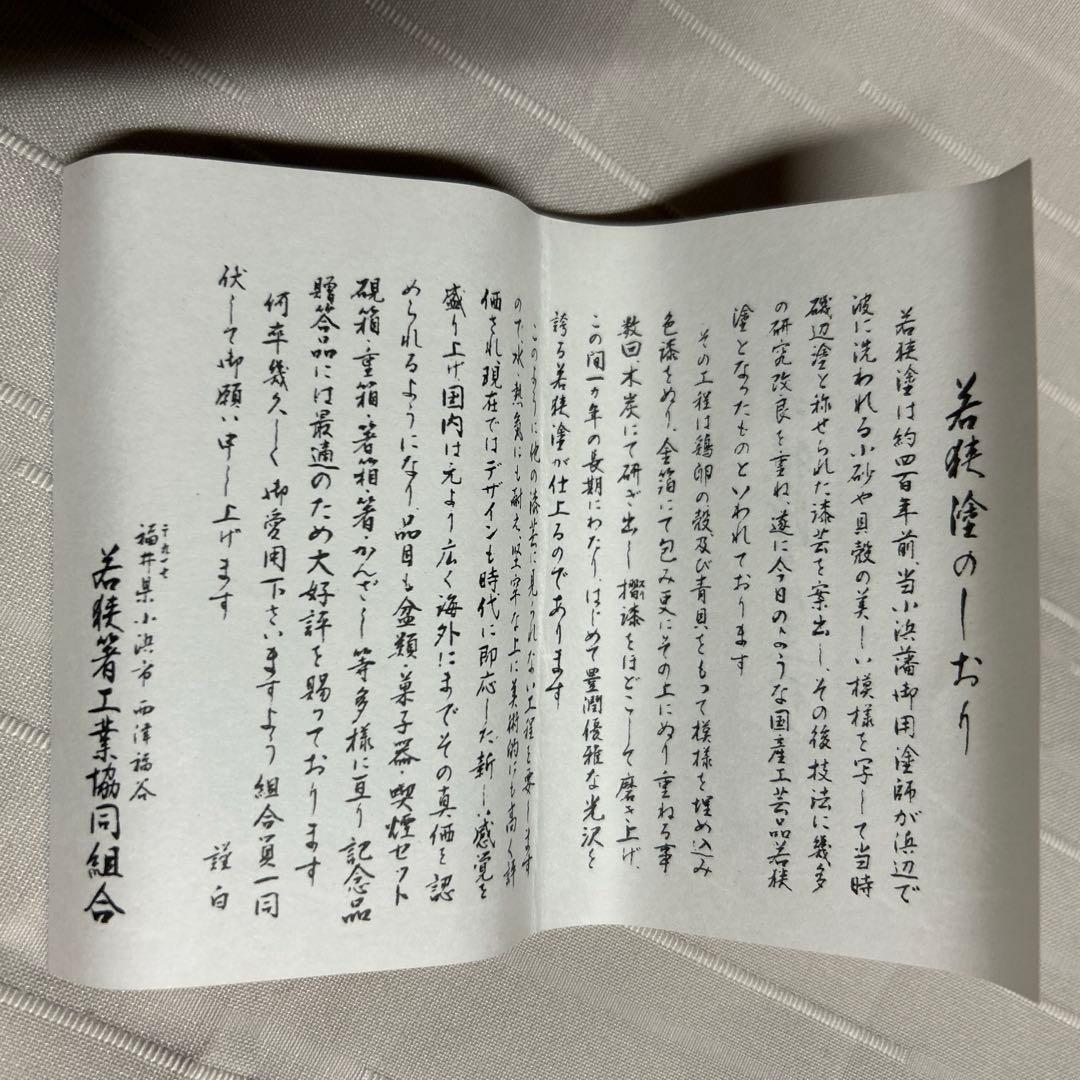 若狭塗のしおり
若狭塗は約四百年前、当小浜藩御用塗師が浜辺で
波に洗われる小砂や貝殻の美しい模様を写して当時
磯辺塗と称せられた漆芸を案出し、その後技法に幾多
の研究改良を重ね、遂に今日のような国産工芸品若狭
塗となったものといわれております
その工程は鶏卵の殻及び青貝をもって模様を埋め込み
色漆をぬり、金箔にて包み更にその上にぬり重ねる事
数回、木炭にて研ぎ出し摺漆をほどこして磨き上げ、
この間一カ年の長期にわたり、はじめて豊潤優雅な光沢を
誇る若狭塗が仕上るのであります
このように他の漆芸に見られない工程を要します
ので、水、熱気にも耐え、堅牢な上に美術的にも高く評
価され、現在ではデザインも時代に即応した新しい感覚を
盛り上げ、国内は元より広く海外にまでその真価を認
められるようになり、品目も盆類・菓子器・喫煙セット
硯箱・重箱・箸箱・箸・かんざし等多様に亘り記念品
贈答品には最適のため大好評を賜っております
何卒幾久しく御愛用下さいますよう組合員一同
伏して御願い申し上げます
謹白
〒九一七
福井県小浜市西津福谷
若狭箸工業協同組合